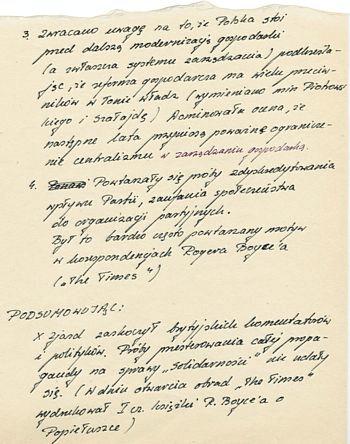 3. Zwracano uwagę na to, że Polska stoi
przed dalszą modernizacją gospodarki
(a zwłaszcza systemu zarządzania) podkreśla-
jąc, że reforma gospodarcza ma wielu przeciw-
ników w łonie władz (wymieniano min Piotrows
kiego i Szałajdę) Dominowała ocena, że
następne lata przyniosą poważne ogranicze-
nie centralizmu w zarządzaniu gospodarką.
4. Powtarzały się próby zdyskredytowania
wpływu Partii, zaufania społeczeństwa
do organizacji partyjnych.
Był to bardzo często powtarzany motyw
w korespondencjach Rogera Boyes'a
("The Times")
PODSUMOWUJĄC:
X Zjazd zaskoczył brytyjskich komentatorów
i polityków. Próby przestrojenia całej propa-
gandy na sprawy "Solidarności" nie udały
się. (W dniu otwarcia obrad "The Times"
wydrukował I cz. książki R. Boyes'a o
Popiełuszce)